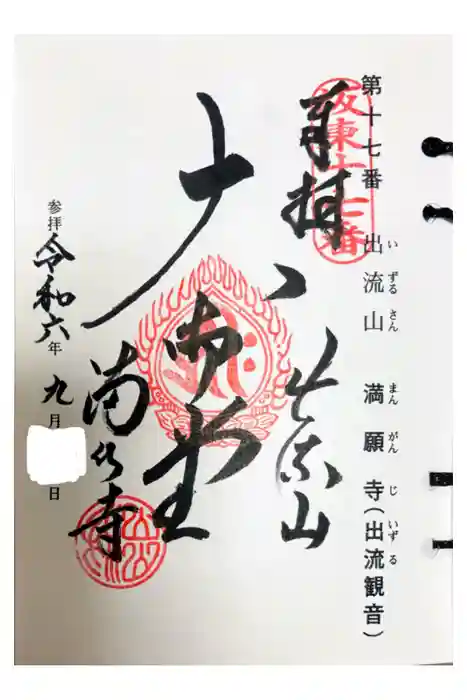 第十七番 出流山 満願寺(出流観音)
いずるさん まんがんじ いずる
坂東十七番
奉拝
出流山
大御堂
満願寺
参拝 令和六年 九月 日